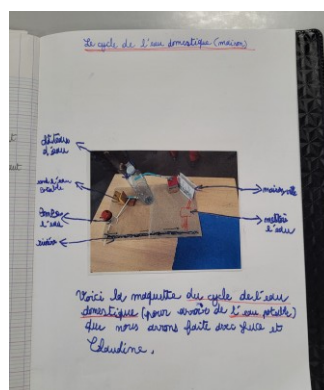 Le cycle de l'eau domestique (maison)
château
d'eau
rend l'eau
potable
l'eau
rivière
maison
mettoi
l'eau
Voici la maquette du cycle de l'eau
domestique (pour avoir de l'eau potable)
que nous avons faite avec Luce et
Claudine.